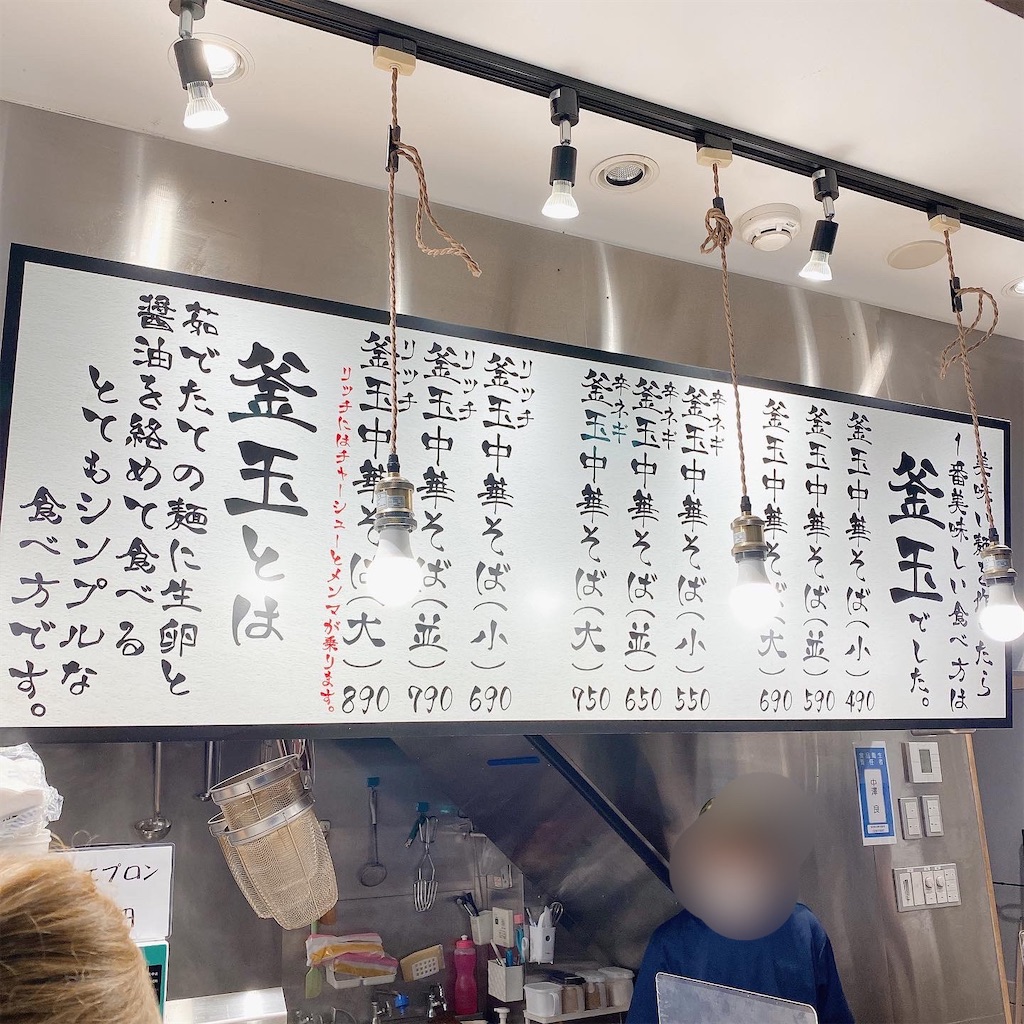 美味しい麺を作ったら
1番美味しい食べ方は
釜玉でした。
釜玉中華そば(小) 490
釜玉中華そば(並) 590
釜玉中華そば(大) 690
辛ネギ
釜玉中華そば(小) 550
辛ネギ
釜玉中華そば(並) 650
辛ネギ
釜玉中華そば(大) 750
リッチ
釜玉中華そば(小) 690
リッチ
釜玉中華そば(並) 790
リッチ
釜玉中華そば(大) 890
リッチにはチャーシューとメンマが乗ります。
釜玉とは
茹でたての麺に生卵と
醤油を絡めて食べる
とてもシンプルな
食べ方です。
エプロン
円
食品衛生
責任者
中澤 良